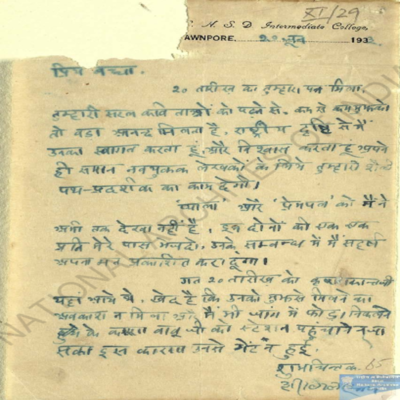 XI/29
A. S. D Intermediate College
AWNPORE. २० जून 193
प्रिय बच्चा.
२० तारीख का तुम्हारा पत्र मिला.
तुम्हारी सरल कविताओं को पढ़ने से. कम से कम मुझको
तो बड़ा आनन्द मिलता है. राष्ट्रीय दृष्टि से मैं
उनका स्वागत करता हूं. और विश्वास करता हूं
ही समान नवयुवक लेखकों के लिये तुम्हारी
पथ-प्रदर्शक का काम देगी।
और 'प्रेमपत्र' को मैंने
अभी तक देखा नहीं है. इन दोनों की एक एक
प्रति मेरे पास भेजदो. उनके सम्बन्ध में मैं
अपना मत प्रकाशित करा दूंगा।
गत २० तारीख को
यहां आये थे. खेद है कि उनको मुझसे मिलने का
अवकाश न मिला और मैं भी जांघ में फोड़ा निकलने
के कारण बाबू जी को स्टेशन पहुंचाने न जा
सका इस कारण उनसे भेंट न हुई.
शुभचिन्तक
NATIONAL ARCHIVES